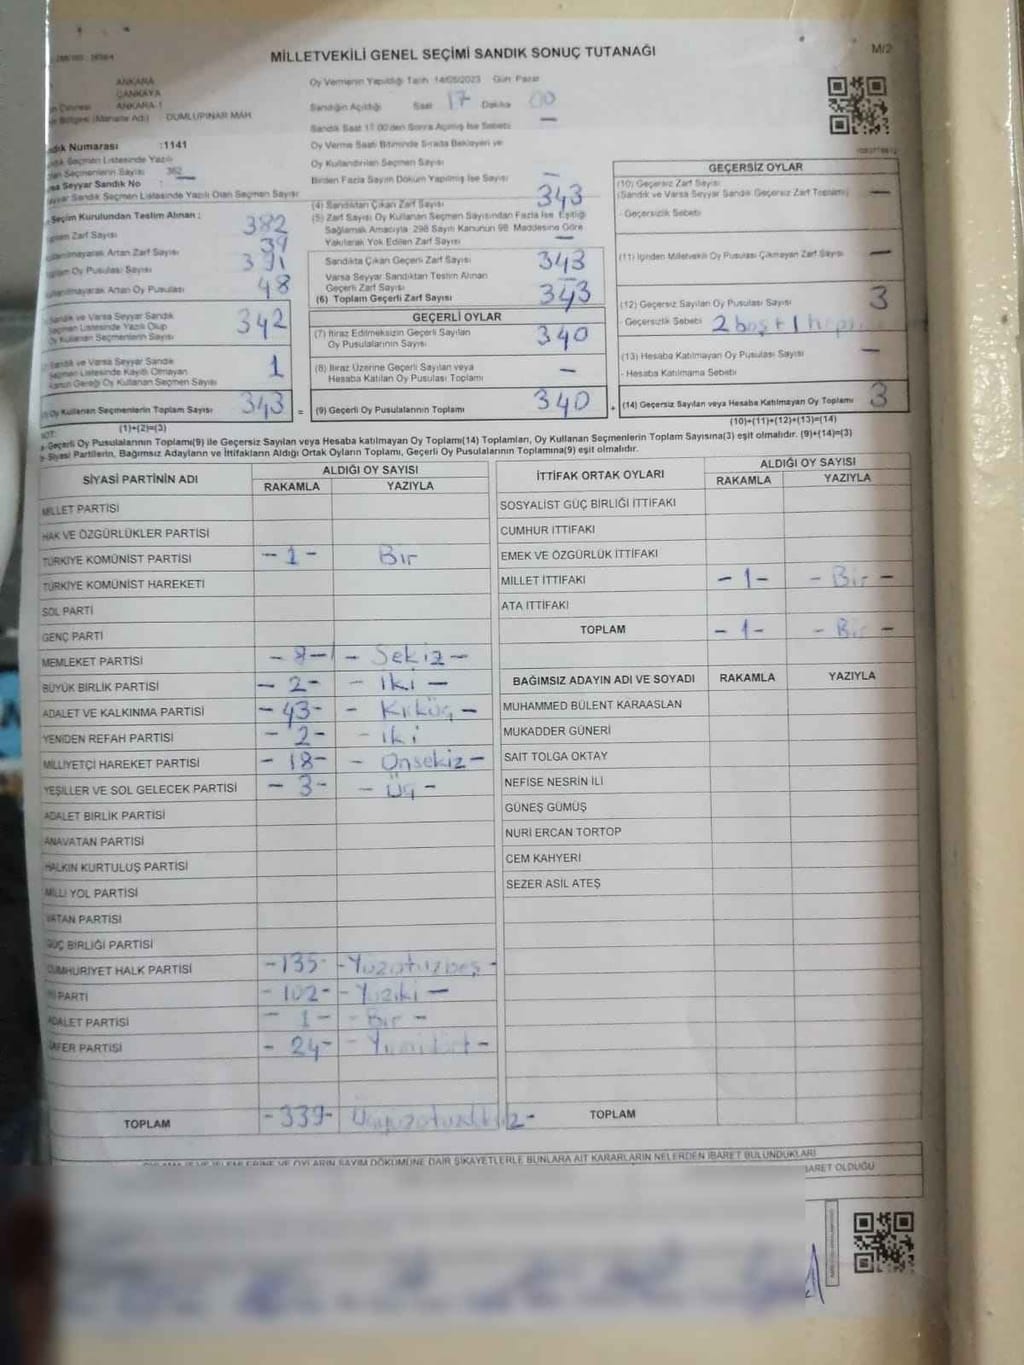 MİLLETVEKİLİ GENEL SEÇİMİ SANDIK SONUÇ TUTANAĞI
M/2
ANKARA
ÇANKAYA
ANKARA-1
DUMLUPINAR MAH.
Oy Vermenin Yapıldığı Tarih 14/05/2023 Gün Pazar
Sandığın Açıldığı Saat 17 Dakika 00
Sandık Saat 17.00'den Sonra Açılmış İse Sebebi —
Numarası :1141
Oy Verme Saati Bitiminde Sırada Bekleyen ve
Oy Kullandırılan Seçmen Sayısı
Birden Fazla Sayım Döküm Yapılmış İse Sayısı —
Seçmen Listesinde Yazılı
Seçmenlerin Sayısı 382
Seyyar Sandık No
Seyyar Sandık Seçmen Listesinde Yazılı Olan Seçmen Sayısı
Seçim Kurulundan Teslim Alınan :
Zarf Sayısı 382
Artan Zarf Sayısı 39
Oy Pusulası Sayısı 391
Artan Oy Pusulası 48
Sandık ve Varsa Seyyar Sandık
Seçmen Listesinde Yazılı Olup
Oy Kullanan Seçmenlerin Sayısı 342
ve Varsa Seyyar Sandık
Seçmen Listesinde Kayıtlı Olmayan
Kanun Gereği Oy Kullanan Seçmen Sayısı 1
Oy Kullanan Seçmenlerin Toplam Sayısı 343 =
(1)+(2)=(3)
(4) Sandıktan Çıkan Zarf Sayısı 343
(5) Zarf Sayısı Oy Kullanan Seçmen Sayısından Fazla İse Eşitliği
Sağlamak Amacıyla 298 Sayılı Kanunun 98. Maddesine Göre
Yakılarak Yok Edilen Zarf Sayısı —
Sandıkta Çıkan Geçerli Zarf Sayısı 343
Varsa Seyyar Sandıktan Teslim Alınan
Geçerli Zarf Sayısı —
(6) Toplam Geçerli Zarf Sayısı 343
GEÇERLİ OYLAR
(7) İtiraz Edilmeksizin Geçerli Sayılan
Oy Pusulalarının Sayısı 340
(8) İtiraz Üzerine Geçerli Sayılan veya
Hesaba Katılan Oy Pusulası Toplamı —
(9) Geçerli Oy Pusulalarının Toplamı 340 +
GEÇERSİZ OYLAR
(10) Geçersiz Zarf Sayısı
(Sandık ve Varsa Seyyar Sandık Geçersiz Zarf Toplamı) —
- Geçersizlik Sebebi
(11) İçinden Milletvekili Oy Pusulası Çıkmayan Zarf Sayısı —
(12) Geçersiz Sayılan Oy Pusulası Sayısı 3
- Geçersizlik Sebebi 2 boş + 1
(13) Hesaba Katılmayan Oy Pusulası Sayısı —
- Hesaba Katılmama Sebebi
(14) Geçersiz Sayılan veya Hesaba Katılmayan Oy Toplamı 3
(10)+(11)+(12)+(13)=(14)
NOT:
a- Geçerli Oy Pusulalarının Toplamı(9) ile Geçersiz Sayılan veya Hesaba katılmayan Oy Toplamı(14) Toplamları, Oy Kullanan Seçmenlerin Toplam Sayısına(3) eşit olmalıdır. (9)+(14)=(3)
b- Siyasi Partilerin, Bağımsız Adayların ve İttifakların Aldığı Ortak Oyların Toplamı, Geçerli Oy Pusulalarının Toplamına(9) eşit olmalıdır.
SİYASİ PARTİNİN ADI ALDIĞI OY SAYISI
RAKAMLA YAZIYLA
MİLLET PARTİSİ
HAK VE ÖZGÜRLÜKLER PARTİSİ
TÜRKİYE KOMÜNİST PARTİSİ -1- Bir
TÜRKİYE KOMÜNİST HAREKETİ
SOL PARTİ
GENÇ PARTİ
MEMLEKET PARTİSİ -8- - Sekiz -
BÜYÜK BİRLİK PARTİSİ -2- - İki -
ADALET VE KALKINMA PARTİSİ -43- - Kırküç -
YENİDEN REFAH PARTİSİ -2- - İki
MİLLİYETÇİ HAREKET PARTİSİ -18- - Onsekiz -
YEŞİLLER VE SOL GELECEK PARTİSİ -3- - Üç -
ADALET BİRLİK PARTİSİ
ANAVATAN PARTİSİ
HALKIN KURTULUŞ PARTİSİ
MİLLİ YOL PARTİSİ
VATAN PARTİSİ
GÜÇ BİRLİĞİ PARTİSİ
CUMHURİYET HALK PARTİSİ -135- - Yüzotuzbeş -
PARTİ -102- - Yüziki -
ADALET PARTİSİ -1- - Bir -
ZAFER PARTİSİ -24- - Yirmidört -
TOPLAM -339- Üçyüzotuzdokuz -
İTTİFAK ORTAK OYLARI ALDIĞI OY SAYISI
RAKAMLA YAZIYLA
SOSYALİST GÜÇ BİRLİĞİ İTTİFAKI
CUMHUR İTTİFAKI
EMEK VE ÖZGÜRLÜK İTTİFAKI
MİLLET İTTİFAKI -1- - Bir -
ATA İTTİFAKI
TOPLAM -1- - Bir -
BAĞIMSIZ ADAYIN ADI VE SOYADI RAKAMLA YAZIYLA
MUHAMMED BÜLENT KARAASLAN
MUKADDER GÜNERİ
SAİT TOLGA OKTAY
NEFİSE NESRİN İLİ
GÜNEŞ GÜMÜŞ
NURİ ERCAN TORTOP
CEM KAHYERİ
SEZER ASİL ATEŞ
TOPLAM
VE OYLARIN SAYIM DÖKÜMÜNE DAİR ŞİKAYETLERLE BUNLARA AİT KARARLARIN NELERDEN İBARET BULUNDUKLARI
İBARET OLDUĞU